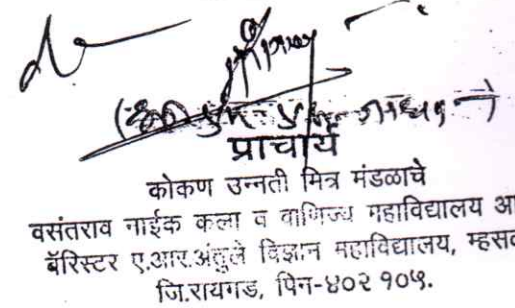 प्राचार्य
कोकण उन्नती मित्र मंडळाचे
वसंतराव नाईक कला व वाणिज्य महाविद्यालय आ
बॅरिस्टर ए.आर.अंतुले विज्ञान महाविद्यालय, म्हसव
जि.रायगड, पिन-४०२ १०५.